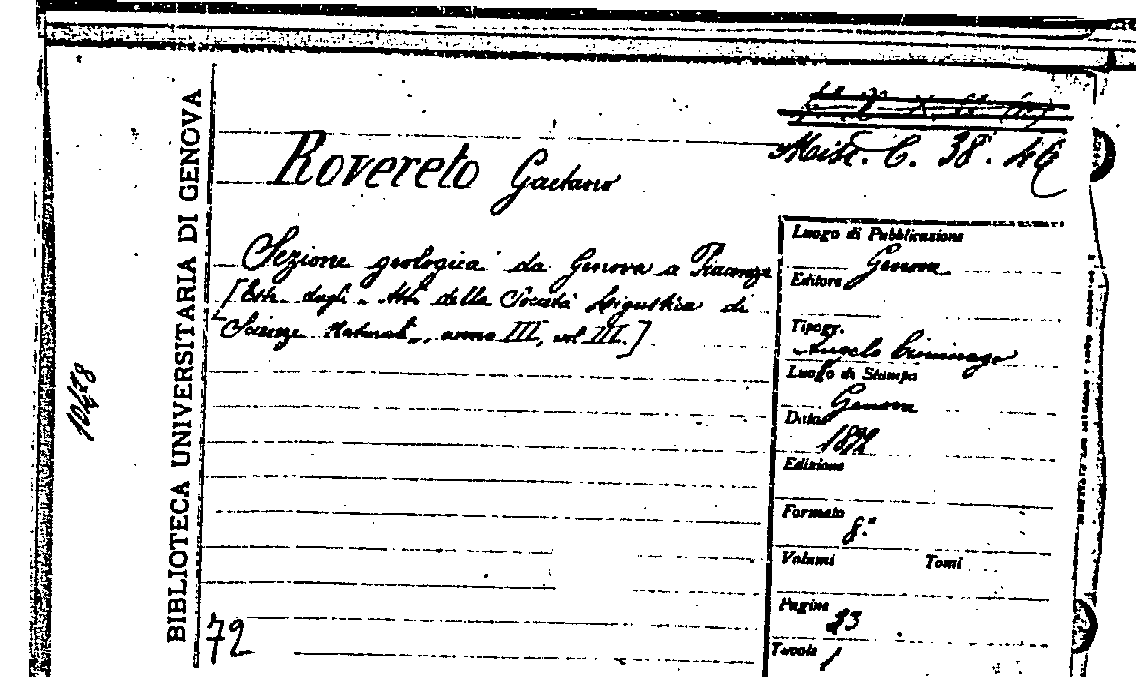 BIBLIOTECA UNIVERSITARIA DI GENOVA
Misc. C. 38. 46
Rovereto Gaetano
Sezione geologica da Genova a Piacenza
[Estr. dagli „ Atti della Società Ligustica di
Scienze Naturali„, anno III, vol III.]
Luogo di Pubblicazione
Genova
Editore
Tipogr.
Angelo Ciminago
Luogo di Stampa
Genova
Data
1892
Edizione
Formato
8.°
Volumi Tomi
Pagine
23
Tavole
1
72